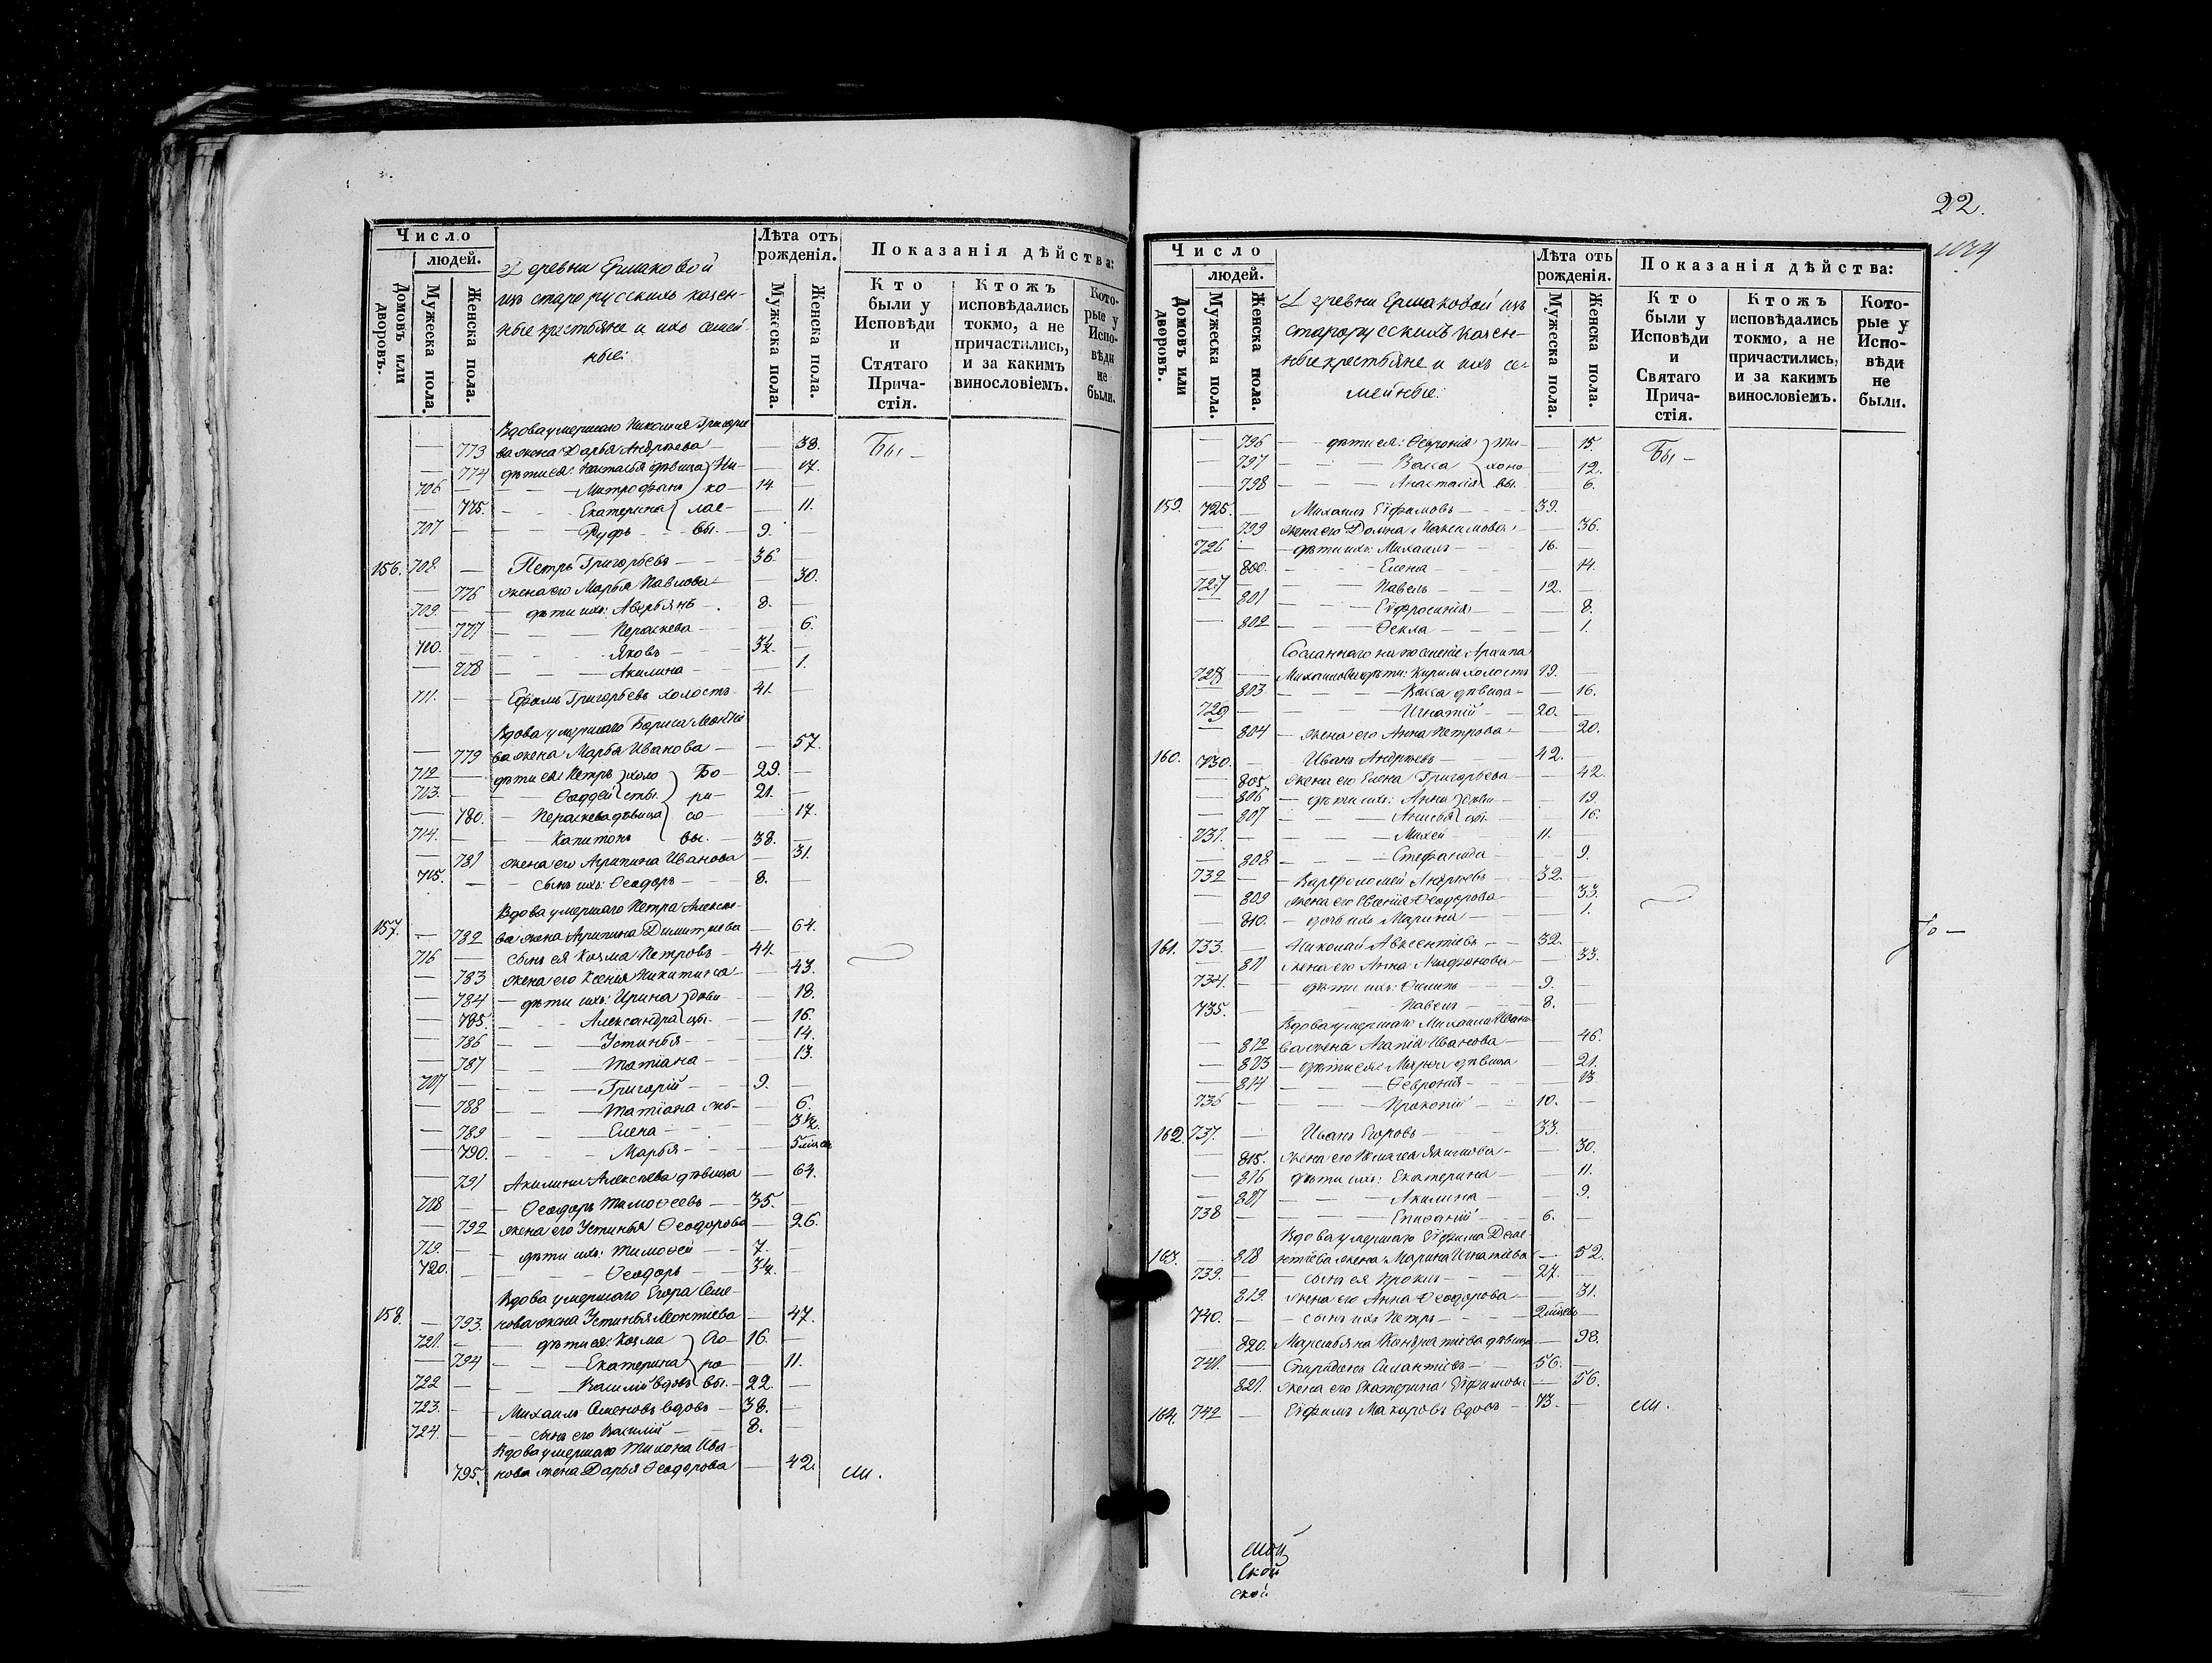 Число
людей.
Домовъ или дворовъ.
Мужеска пола.
Женска пола.
Деревни Ермаковой
изъ старорусскихъ казен-
ные крестьяне и ихъ семей-
ные:
Лѣта отъ рожденія.
Мужеска пола.
Женска пола.
Показанія дѣйства:
Кто были у Исповѣди и Стятаго Прича-стія.
Ктожъ исповѣдались токмо, а не причастились, и за какимъ винословіемъ.
Кото-рые у Испо-вѣди не были.
Вдова умершаго Николая Григорье
— 773 ва жена Дарья Андреева — 38. Бы —
— 774 дѣти ея: Настасья дѣвица Ни- — 17.
706 — Митрофанъ ко- 14 —
— 775. Екатерина лае- — 11.
707 — Руфъ вы. 9. —
156. 708. — Петръ Григорьевъ 36. —
— 776 жена его Марья Павлова — 30.
709. — дѣти ихъ: Аверьянъ 8. —
— 777 Параскева — 6.
710. — Яковъ 3½. —
— 778 Акилина — 1.
711. — Ефимъ Григорьевъ холостъ 41. —
Вдова умершаго Бориса
— 779 ва жена Марья Иванова — 57.
712 — дѣти ея: Петръ холо Бо- 29. —
713. — Фаддей сты. ри- 21. —
— 780. Параскева дѣвица со- — 17.
714. — Капитонъ вы. 38. —
— 781 жена его Агрипина Иванова — 31.
715. — сынъ ихъ: Ѳеодоръ 8. —
Вдова умершаго Петра Алексѣе-
157. — 782 ва жена Агрипина Димитріева — 64.
716 — сынъ ея Козма Петровъ 44. —
— 783 жена его Ксенія Никитина — 43.
— 784 дѣти ихъ: Ирина дѣви — 18.
— 785. Александра цы. — 16.
— 786 Устинья — 14.
— 787 Татіана — 13.
717 — Григорій 9. —
— 788 Татіана — 6.
— 789 Елена — 3½.
— 790. Марья — 5 мѣся
— 791 Акилина Алексѣева дѣвица — 64.
718 — Ѳеодоръ Тимоѳеевъ 35. —
— 792 жена его Устинья Ѳеодорова — 26.
719. — дѣти ихъ: Тимоѳей 7. —
720. — Ѳеодоръ 3½. —
Вдова умершаго Егора Семе-
158. — 793. нова жена Устинья — 47.
721. — дѣти ея: Козма 16. —
— 794 Екатерина ро- — 11.
722 — Василій вдовъ вы. 22. —
723. — Михаилъ Семеновъ вдовъ 38. —
724. — сынъ его Василій 8. —
Вдова умершаго Тихона Ива-
795. нова жена Дарья Ѳеодорова — 42. ли.
22.
Число
людей.
Домовъ или дворовъ.
Мужеска пола.
Женска пола.
Деревни Ермаковой изъ
старорусскихъ казен-
ные крестьяне и ихъ се-
мейные:
Лѣта отъ рожденія.
Мужеска пола.
Женска пола.
Показанія дѣйства:
Кто были у Исповѣди и Святаго Прича-стія.
Ктожъ исповѣдались токмо, а не причастились, и за какимъ винословіемъ.
Кото-рые у Испо-вѣди не были.
— 796 дѣти ея: Ѳевронія Ти- — 15. Бы —
— 797 Васса хоно- — 12.
— 798 Анастасія вы. — 6.
159. 725. — Михаилъ Ефимовъ 39.
— 799 жена его Домна Максимова — 36.
726 — дѣти ихъ: Михаилъ 16. —
— 800. Елена — 14.
727 — Павелъ 12. —
— 801 Евфросинія — 8.
— 802 Ѳекла — 1.
Сосланнаго на поселеніе Архипа
728 — Михаилова дѣти: Кирилъ холостъ 19. —
— 803 Васса дѣвица — 16.
729 — Игнатій 20. —
— 804 жена его Анна Петрова — 20.
160. 730. — Иванъ Андреевъ 42. —
— 805. жена его Елена Григорьева — 42.
— 806 дѣти ихъ: Анна дѣви — 19.
— 807 Анисья цы. — 16.
731. — Михей 11. —
— 808 Стефанида — 9.
732 — Варфоломей Андреевъ 32. —
— 809 жена его Евгенія Ѳеодорова — 33.
— 810. дочь ихъ Марина — 1.
161. 733. — Николай Авксентіевъ 32. —
— 811 жена его Анна — 33.
734. — дѣти ихъ: Филипъ 9. —
735. — Павелъ 8. —
Вдова умершаго Михаила Ивано
— 812 ва жена Агапія Иванова — 46.
— 813 дѣти ея: Марья дѣвица — 21.
— 814 Ѳевронія — 13
736 — Прокопій 10. —
162. 737. — Иванъ Егоровъ 33. —
815. жена его Акимова — 30.
— 816 дѣти ихъ: Екатерина — 11.
— 817 Акилина — 9.
738 — Епифаній 6. —
Вдова умершаго Ефима Деме-
163. — 818 нтіева жена Марина Игнатіева — 52.
739. — сынъ ея Проклъ 27. —
— 819. жена его Анна Ѳеодорова — 31.
740. — сынъ ихъ Петръ 2 мѣсяцъ —
— 820. Маремьяна Кондратіева дѣвица — 98.
741. — Спиридонъ Силантіевъ 56. —
821. жена его Екатерина Ефимова — 56.
164. 742 — Ефимъ Макаровъ вдовъ 73. — ли.
ской
ской